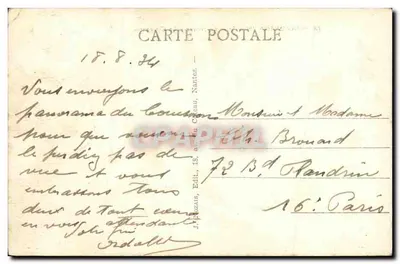 CARTE POSTALE
18.8.34
Vous envoyons le
panorama du
pour que
le perdiez pas de
vue et vous
embrassons tous
deux de tout coeur
en vous attendant
Monsieur et Madame
Brouard
72 Bd Flandrin
16e Paris
Nantes.